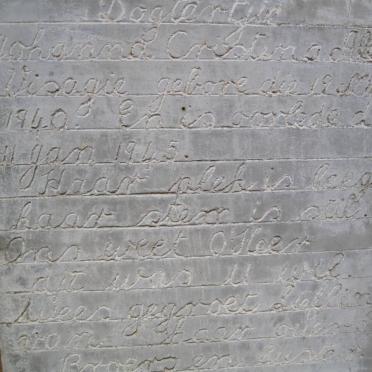 Dogtertjie
Johanna Crestina
Visagie gebore die 12
1940. En is oorlede
11 Jan 1945.
Haar plek is leeg
haar stem is stil.
Ons weet O Heer
dit was u wil.
Wees gegroet Liefling
van Haar ouers
Broers en susters